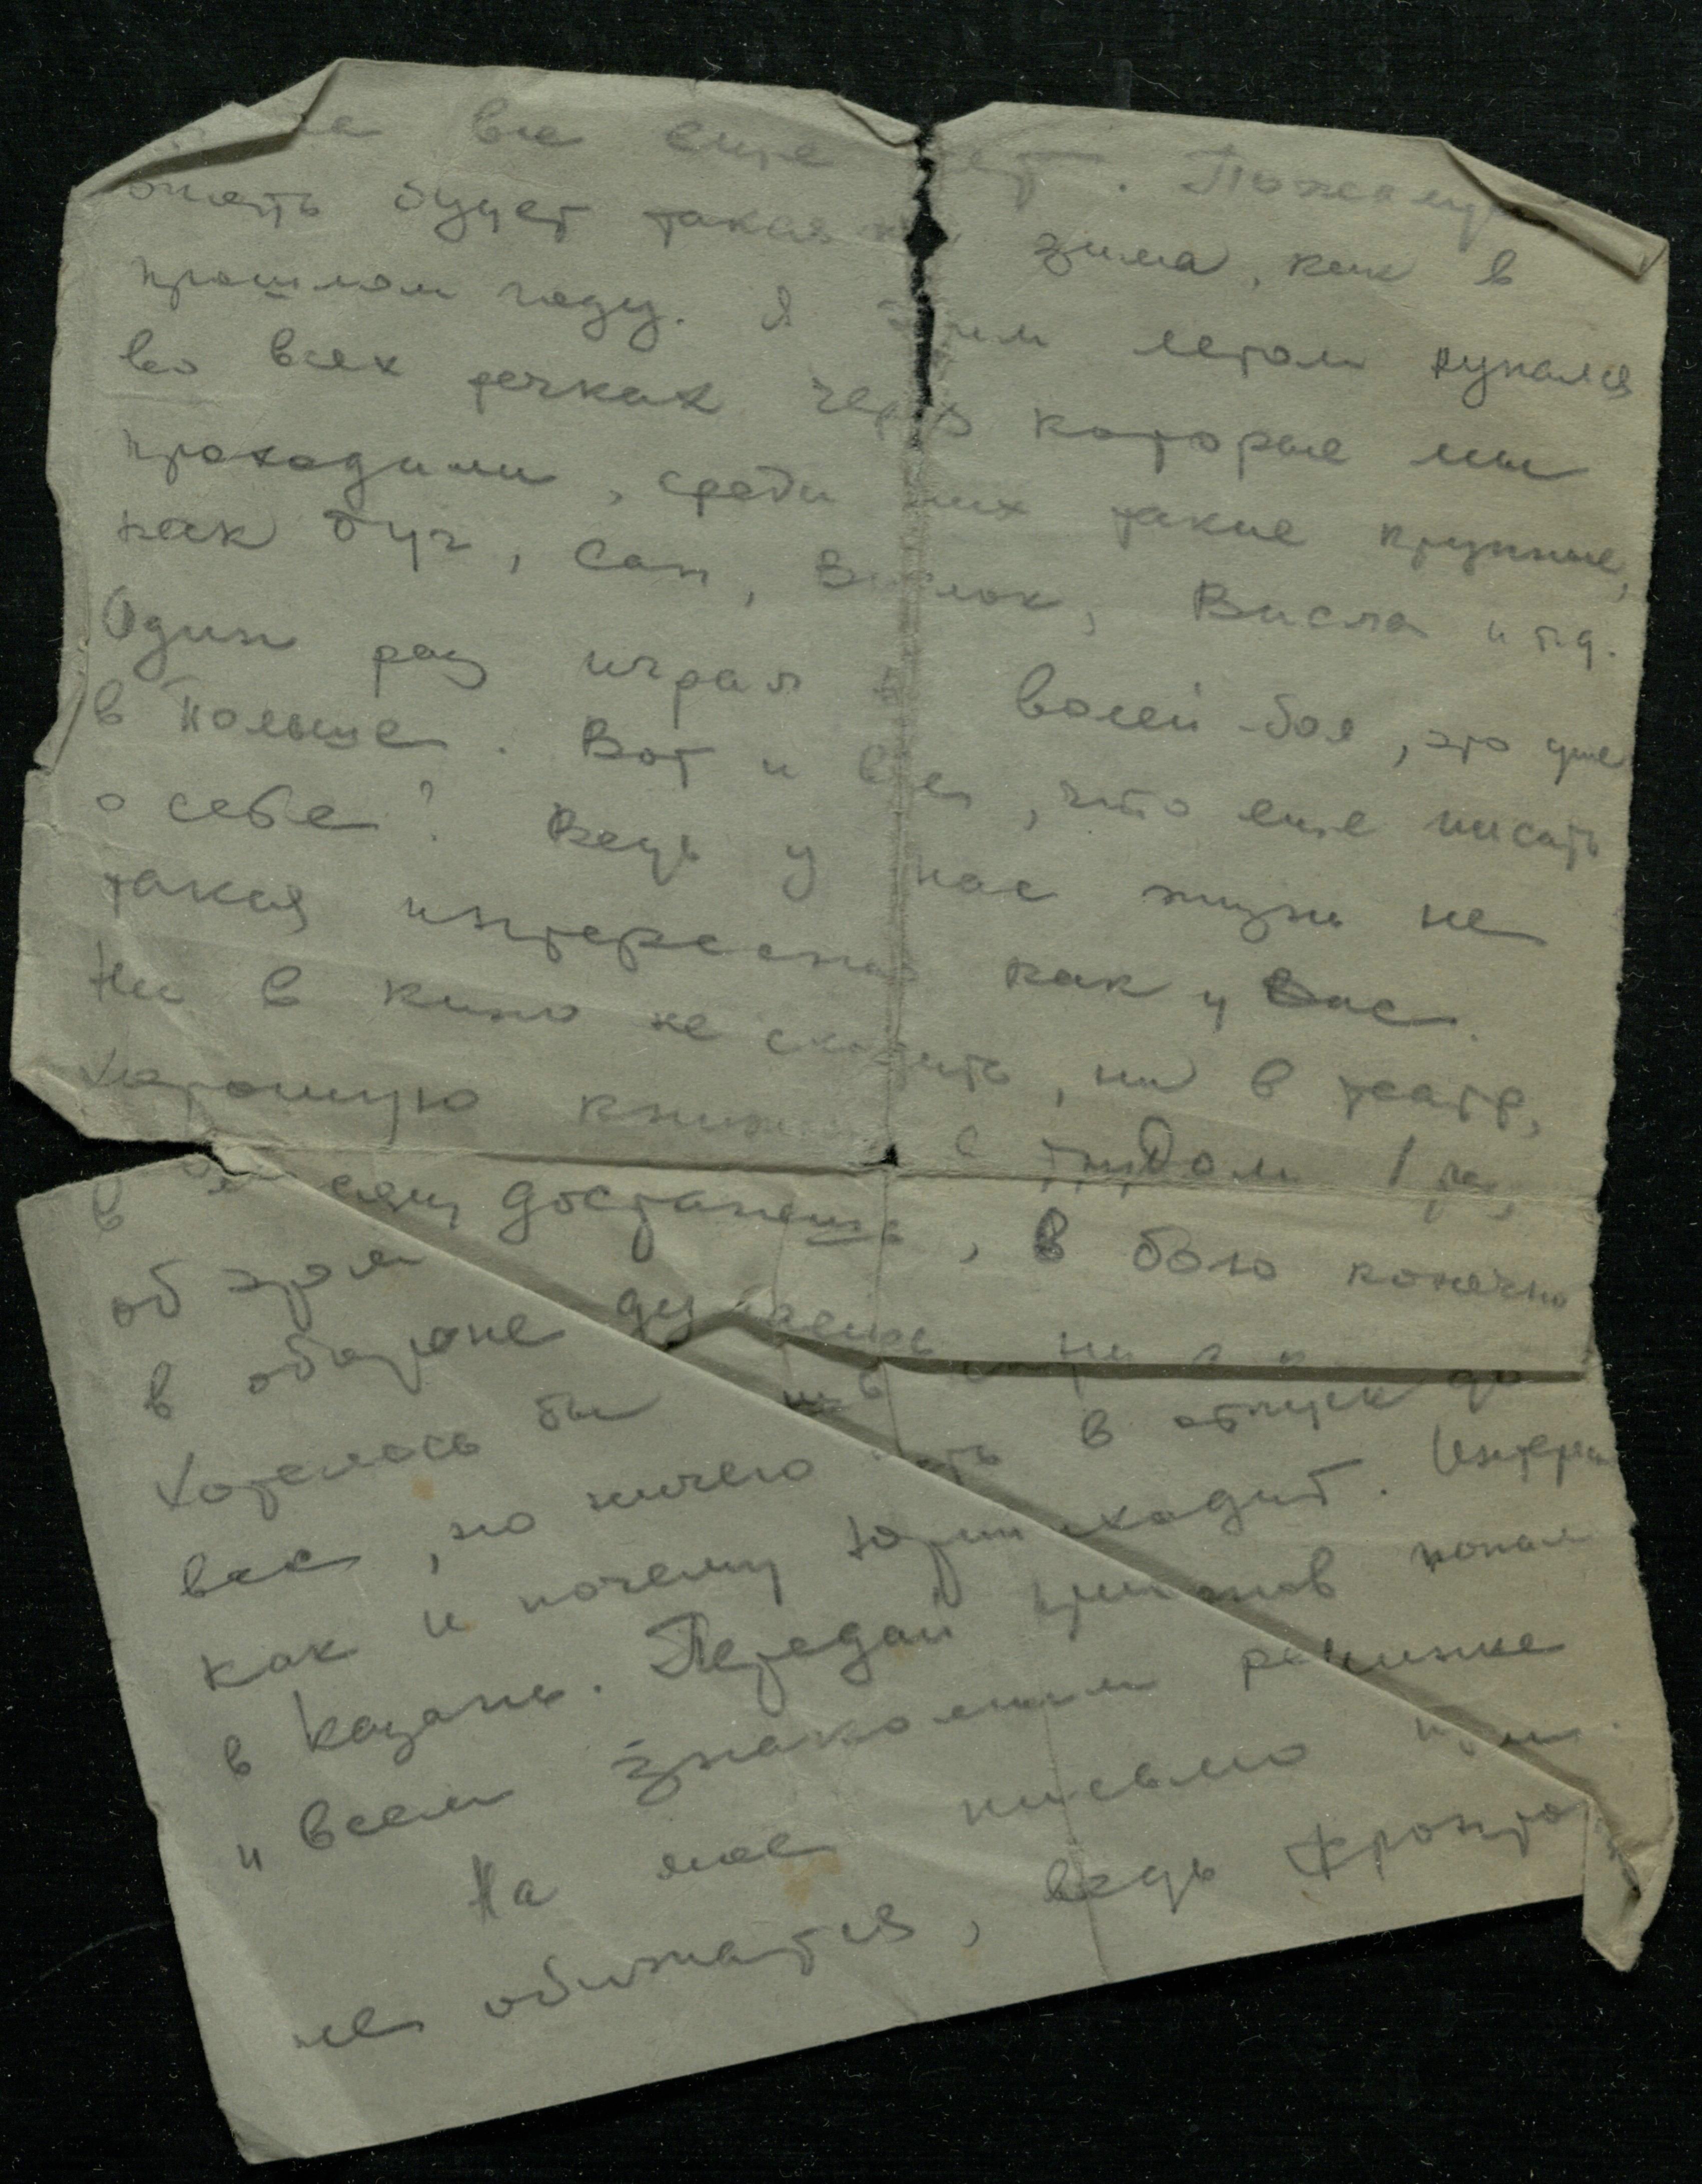 все еще нет. Пожалуй
опять будет такая же зима, как в
прошлом году. Я этим летом купался
во всех речках через которые мы
проходили, среди них такие крупные,
как Буг, Сан, Вислок, Висла и т.д.
Один раз играл в волей-бол, это уже
в Польше. Вот и все, что еще писать
о себе? Ведь у нас жизнь не
такая интересная как у Вас.
Ни в кино не сходить, ни в театр,
хорошую книжку с трудом 1 раз
в месяц достанешь, в бою конечно
об этом
в обороне
Хотелось бы в отпуск
вас, но ничего не выходит. Интересно
как и почему Юрий попал
в Казань. Передай привет
и всем знакомым
На мое письмо
не обижайтся, ведь фронто